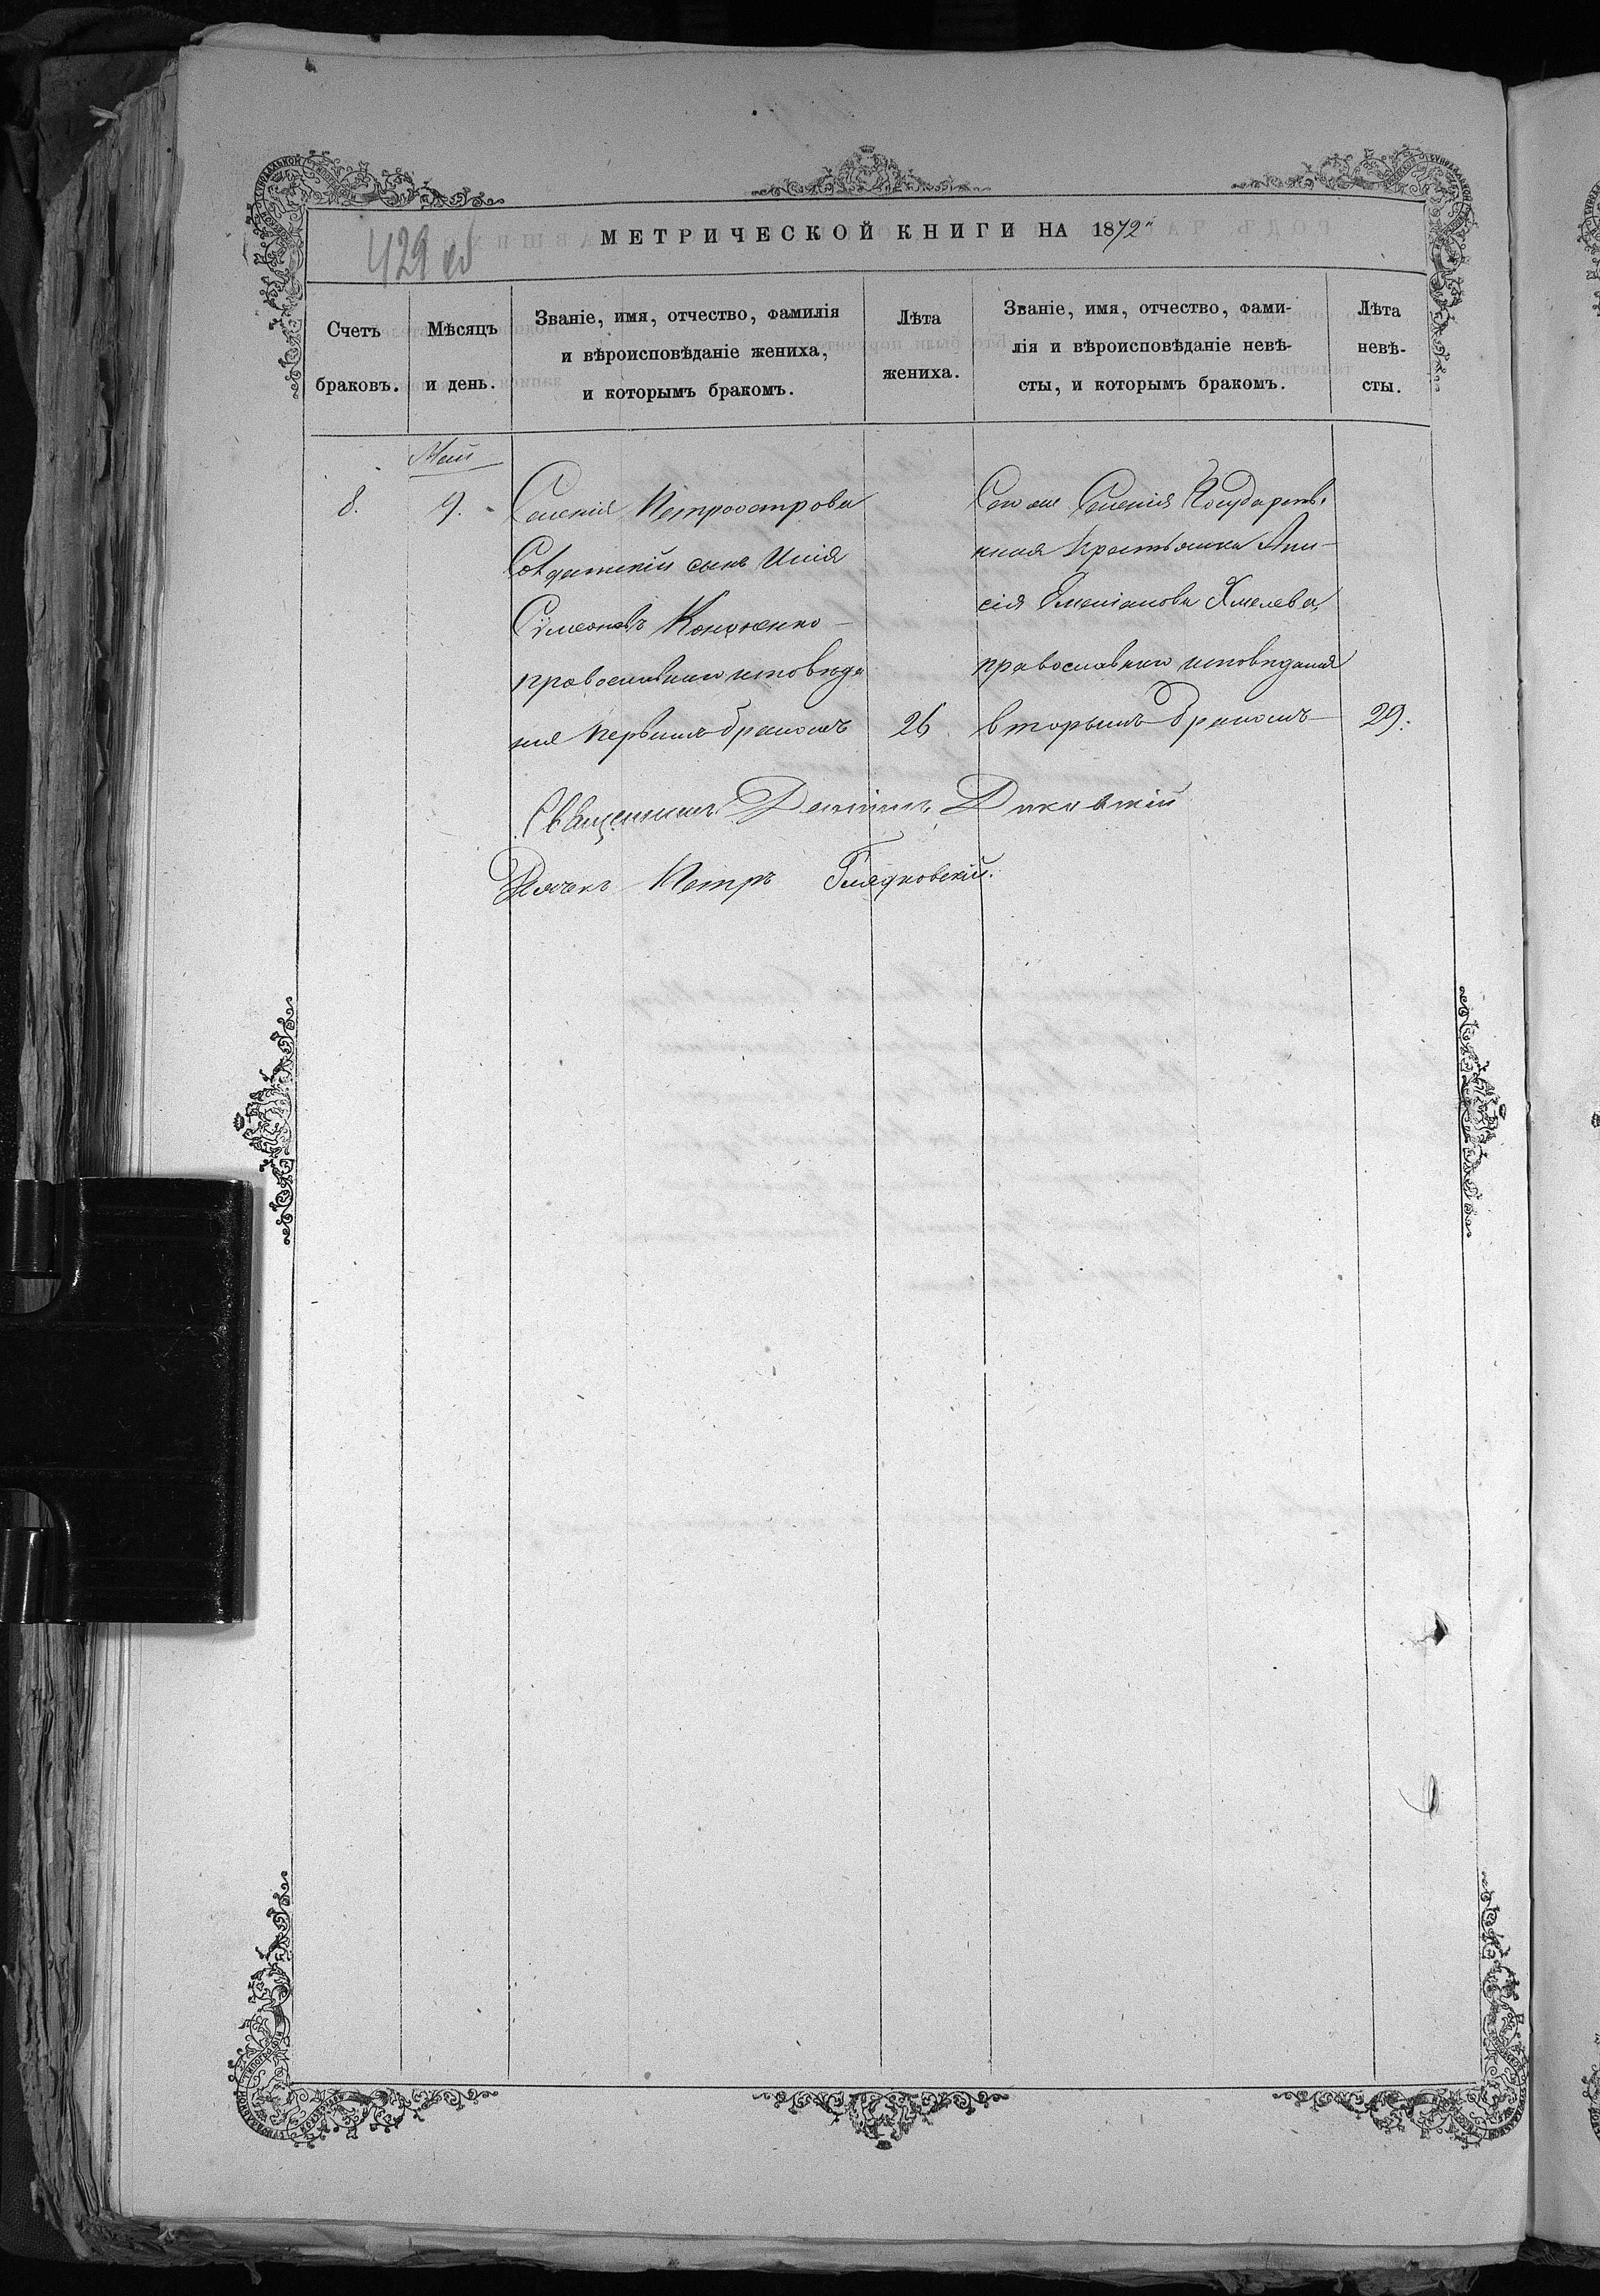 429 об
МЕТРИЧЕСКОЙ КНИГИ НА 1872
Счетъ браковъ.
Мѣсяцъ и день.
Званіе, имя, отчество, фамилія
и вѣроисповѣданіе жениха,
и которымъ бракомъ.
Лѣта
жениха.
Званіе, имя, отчество, фами-
лія и вѣроисповѣданіе невѣ-
сты, и которымъ бракомъ.
Лѣта
невѣ-
сты.
Май
8.
9.
Селенія Петроострова
Солдатскій сынъ Илія
Сѵмеоновъ Кононенко
православнаго исповѣда
нія первымъ бракомъ
26
Того же Селенія Государств.
нная крестьянка Ани-
сія Емеліанова Хмелева,
православнаго исповѣданія
вторымъ бракомъ
29.
Священникъ
Дьячекъ Петръ Гладковскій.